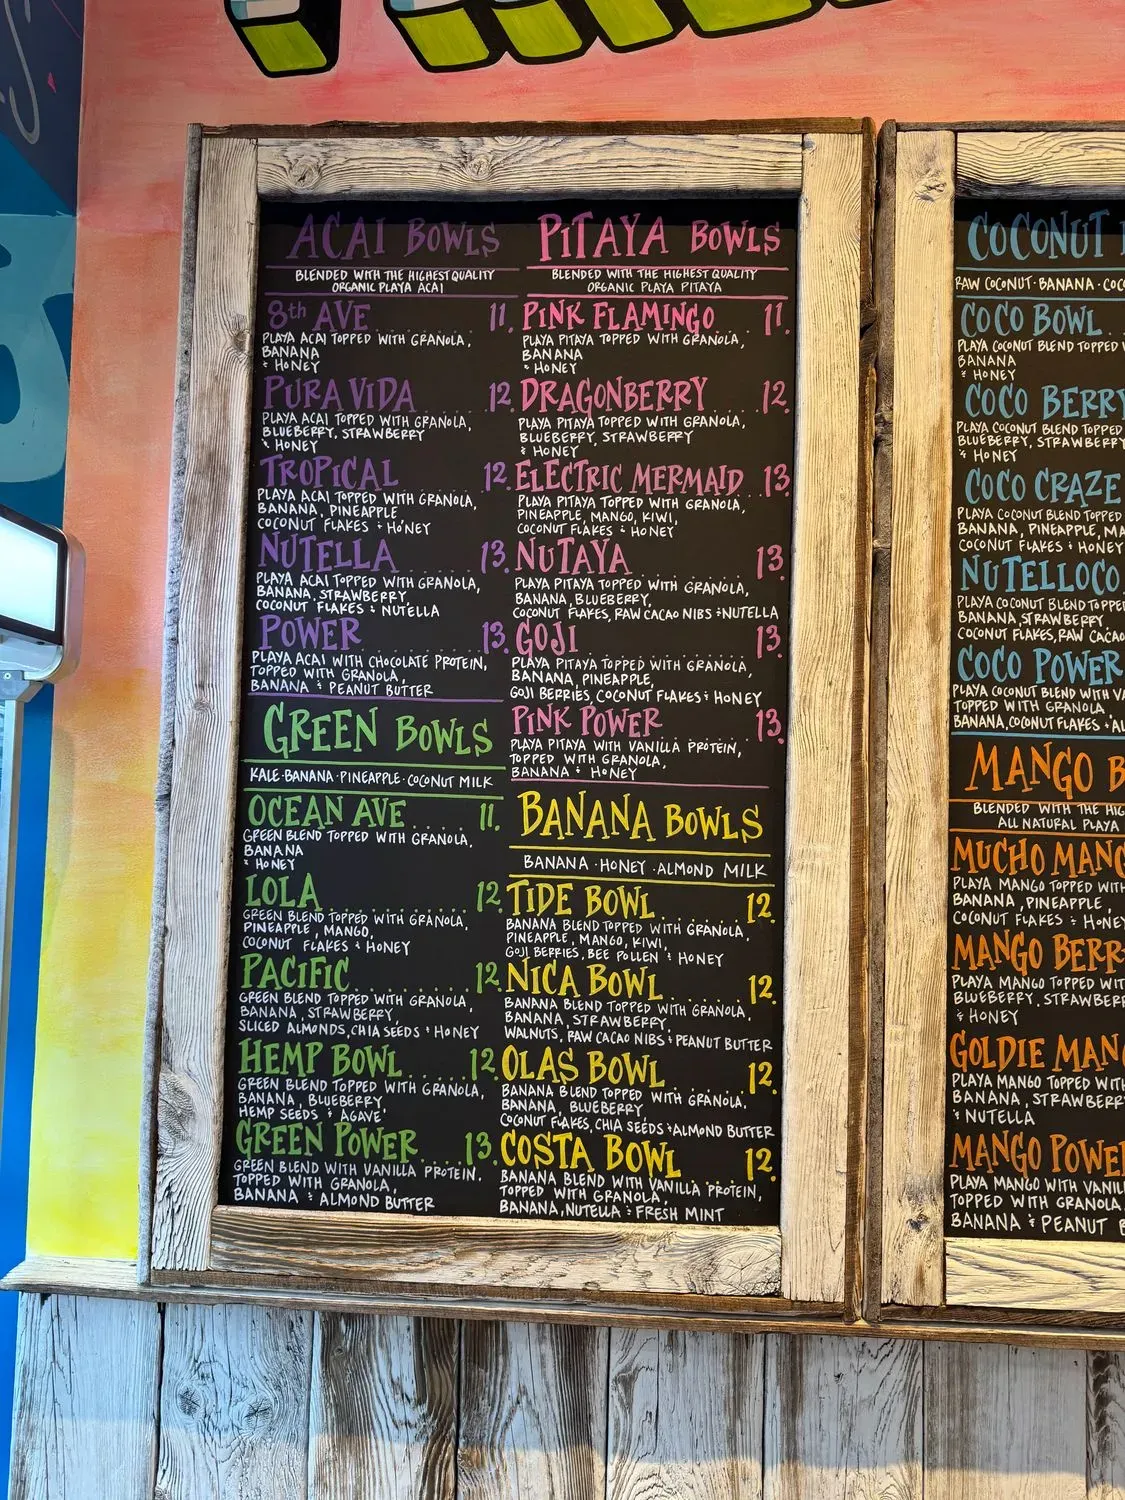 ACAI BOWLS
BLENDED WITH THE HIGHEST QUALITY
ORGANIC PLAYA ACAI
8th AVE 11.
PLAYA ACAI TOPPED WITH GRANOLA,
BANANA
& HONEY
PURA VIDA 12
PLAYA ACAI TOPPED WITH GRANOLA,
BLUEBERRY, STRAWBERRY
& HONEY
TROPICAL 12.
PLAYA ACAI TOPPED WITH GRANOLA,
BANANA, PINEAPPLE
COCONUT FLAKES & HONEY
NUTELLA 13.
PLAYA ACAI TOPPED WITH GRANOLA,
BANANA, STRAWBERRY,
COCONUT FLAKES & NUTELLA
POWER 13.
PLAYA ACAI WITH CHOCOLATE PROTEIN,
TOPPED WITH GRANOLA,
BANANA & PEANUT BUTTER
GREEN BOWLS
KALE · BANANA · PINEAPPLE · COCONUT MILK
OCEAN AVE 11.
GREEN BLEND TOPPED WITH GRANOLA,
BANANA
& HONEY
LOLA 12.
GREEN BLEND TOPPED WITH GRANOLA,
PINEAPPLE, MANGO,
COCONUT FLAKES & HONEY
PACIFIC 12.
GREEN BLEND TOPPED WITH GRANOLA,
BANANA, STRAWBERRY,
SLICED ALMONDS, CHIA SEEDS & HONEY
HEMP BOWL 12.
GREEN BLEND TOPPED WITH GRANOLA,
BANANA, BLUEBERRY
HEMP SEEDS & AGAVE
GREEN POWER 13.
GREEN BLEND WITH VANILLA PROTEIN.
TOPPED WITH GRANOLA,
BANANA & ALMOND BUTTER
PITAYA BOWLS
BLENDED WITH THE HIGHEST QUALITY
ORGANIC PLAYA PITAYA
PINK FLAMINGO 11.
PLAYA PITAYA TOPPED WITH GRANOLA,
BANANA
& HONEY
DRAGONBERRY 12.
PLAYA PITAYA TOPPED WITH GRANOLA,
BLUEBERRY, STRAWBERRY
& HONEY
ELECTRIC MERMAID 13.
PLAYA PITAYA TOPPED WITH GRANOLA,
PINEAPPLE, MANGO, KIWI,
COCONUT FLAKES & HONEY
NUTAYA 13.
PLAYA PITAYA TOPPED WITH GRANOLA,
BANANA, BLUEBERRY,
COCONUT FLAKES, RAW CACAO NIBS & NUTELLA
GOJI 13.
PLAYA PITAYA TOPPED WITH GRANOLA,
BANANA, PINEAPPLE,
GOJI BERRIES, COCONUT FLAKES & HONEY
PINK POWER 13.
PLAYA PITAYA WITH VANILLA PROTEIN,
TOPPED WITH GRANOLA,
BANANA & HONEY
BANANA BOWLS
BANANA · HONEY · ALMOND MILK
TIDE BOWL 12.
BANANA BLEND TOPPED WITH GRANOLA,
PINEAPPLE, MANGO, KIWI,
GOJI BERRIES, BEE POLLEN & HONEY
NICA BOWL 12.
BANANA BLEND TOPPED WITH GRANOLA,
BANANA, STRAWBERRY,
WALNUTS, RAW CACAO NIBS & PEANUT BUTTER
OLAS BOWL 12.
BANANA BLEND TOPPED WITH GRANOLA,
BANANA, BLUEBERRY
COCONUT FLAKES, CHIA SEEDS & ALMOND BUTTER
COSTA BOWL 12.
BANANA BLEND WITH VANILLA PROTEIN,
TOPPED WITH GRANOLA,
BANANA, NUTELLA & FRESH MINT
COCONUT
RAW COCONUT · BANANA ·
COCO BOWL
PLAYA COCONUT BLEND TOPPED
BANANA
& HONEY
COCO BERRY
PLAYA COCONUT BLEND TOPPED
BLUEBERRY, STRAWBERRY
& HONEY
COCO CRAZE
PLAYA COCONUT BLEND TOPPED
BANANA, PINEAPPLE,
COCONUT FLAKES & HONEY
NUTELLOCO
PLAYA COCONUT BLEND TOPPED
BANANA, STRAWBERRY
COCONUT FLAKES, RAW CACAO
COCO POWER
PLAYA COCONUT BLEND WITH
TOPPED WITH GRANOLA
BANANA, COCONUT FLAKES &
MANGO
BLENDED WITH THE
ALL NATURAL PLAYA
MUCHO
PLAYA MANGO TOPPED WITH
BANANA, PINEAPPLE,
COCONUT FLAKES & HONEY
MANGO
PLAYA MANGO TOPPED
BLUEBERRY,
& HONEY
GOLDIE
PLAYA MANGO TOPPED WITH
BANANA,
& NUTELLA
MANGO POWER
PLAYA MANGO WITH
TOPPED WITH GRANOLA,
BANANA & PEANUT